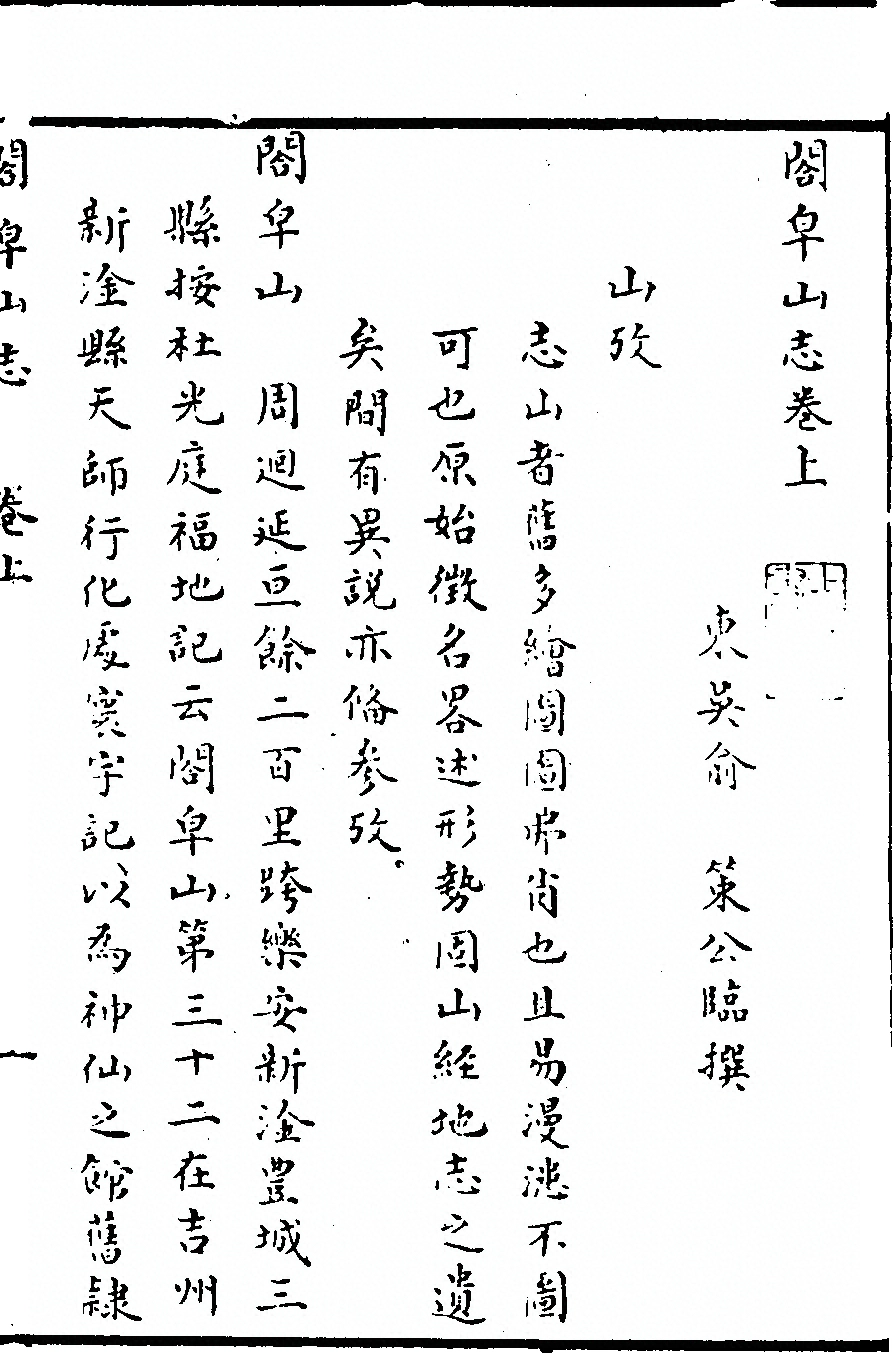 閤皁山志卷上
東吳俞 策公臨撰
山攷
志山者舊多繪圖圖弗肖也且易漫漶不圖
可也原始徵名畧述形勢固山經地志之遺
矣間有異説亦俻參攷。
閤皁山 周迴延亘餘二百里跨樂安新淦豊城三
縣按杜光庭福地記云閤皁山第三十二在吉州
新淦縣天師行化處寰宇記以為神仙之館舊隸
閤皁山志 卷上 一